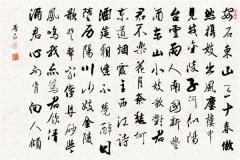 安石東山三十春傲
然携妓出風塵樓中
見我金陵子何似陽
台雲雨人南國新豐
酒東山小妓歌對君
君不樂花月奈愁何
東道烟霞主西江詩
酒筵相逢不覺醉日
墮歷陽川小妓金陵
歌楚聲家僮丹砂學
鳳鳴我亦為君飲清
酒君心不肯向人傾